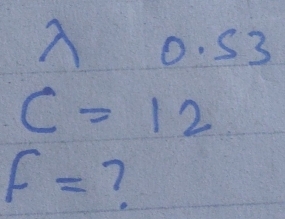 λ 0.53
C = 12
F = ?